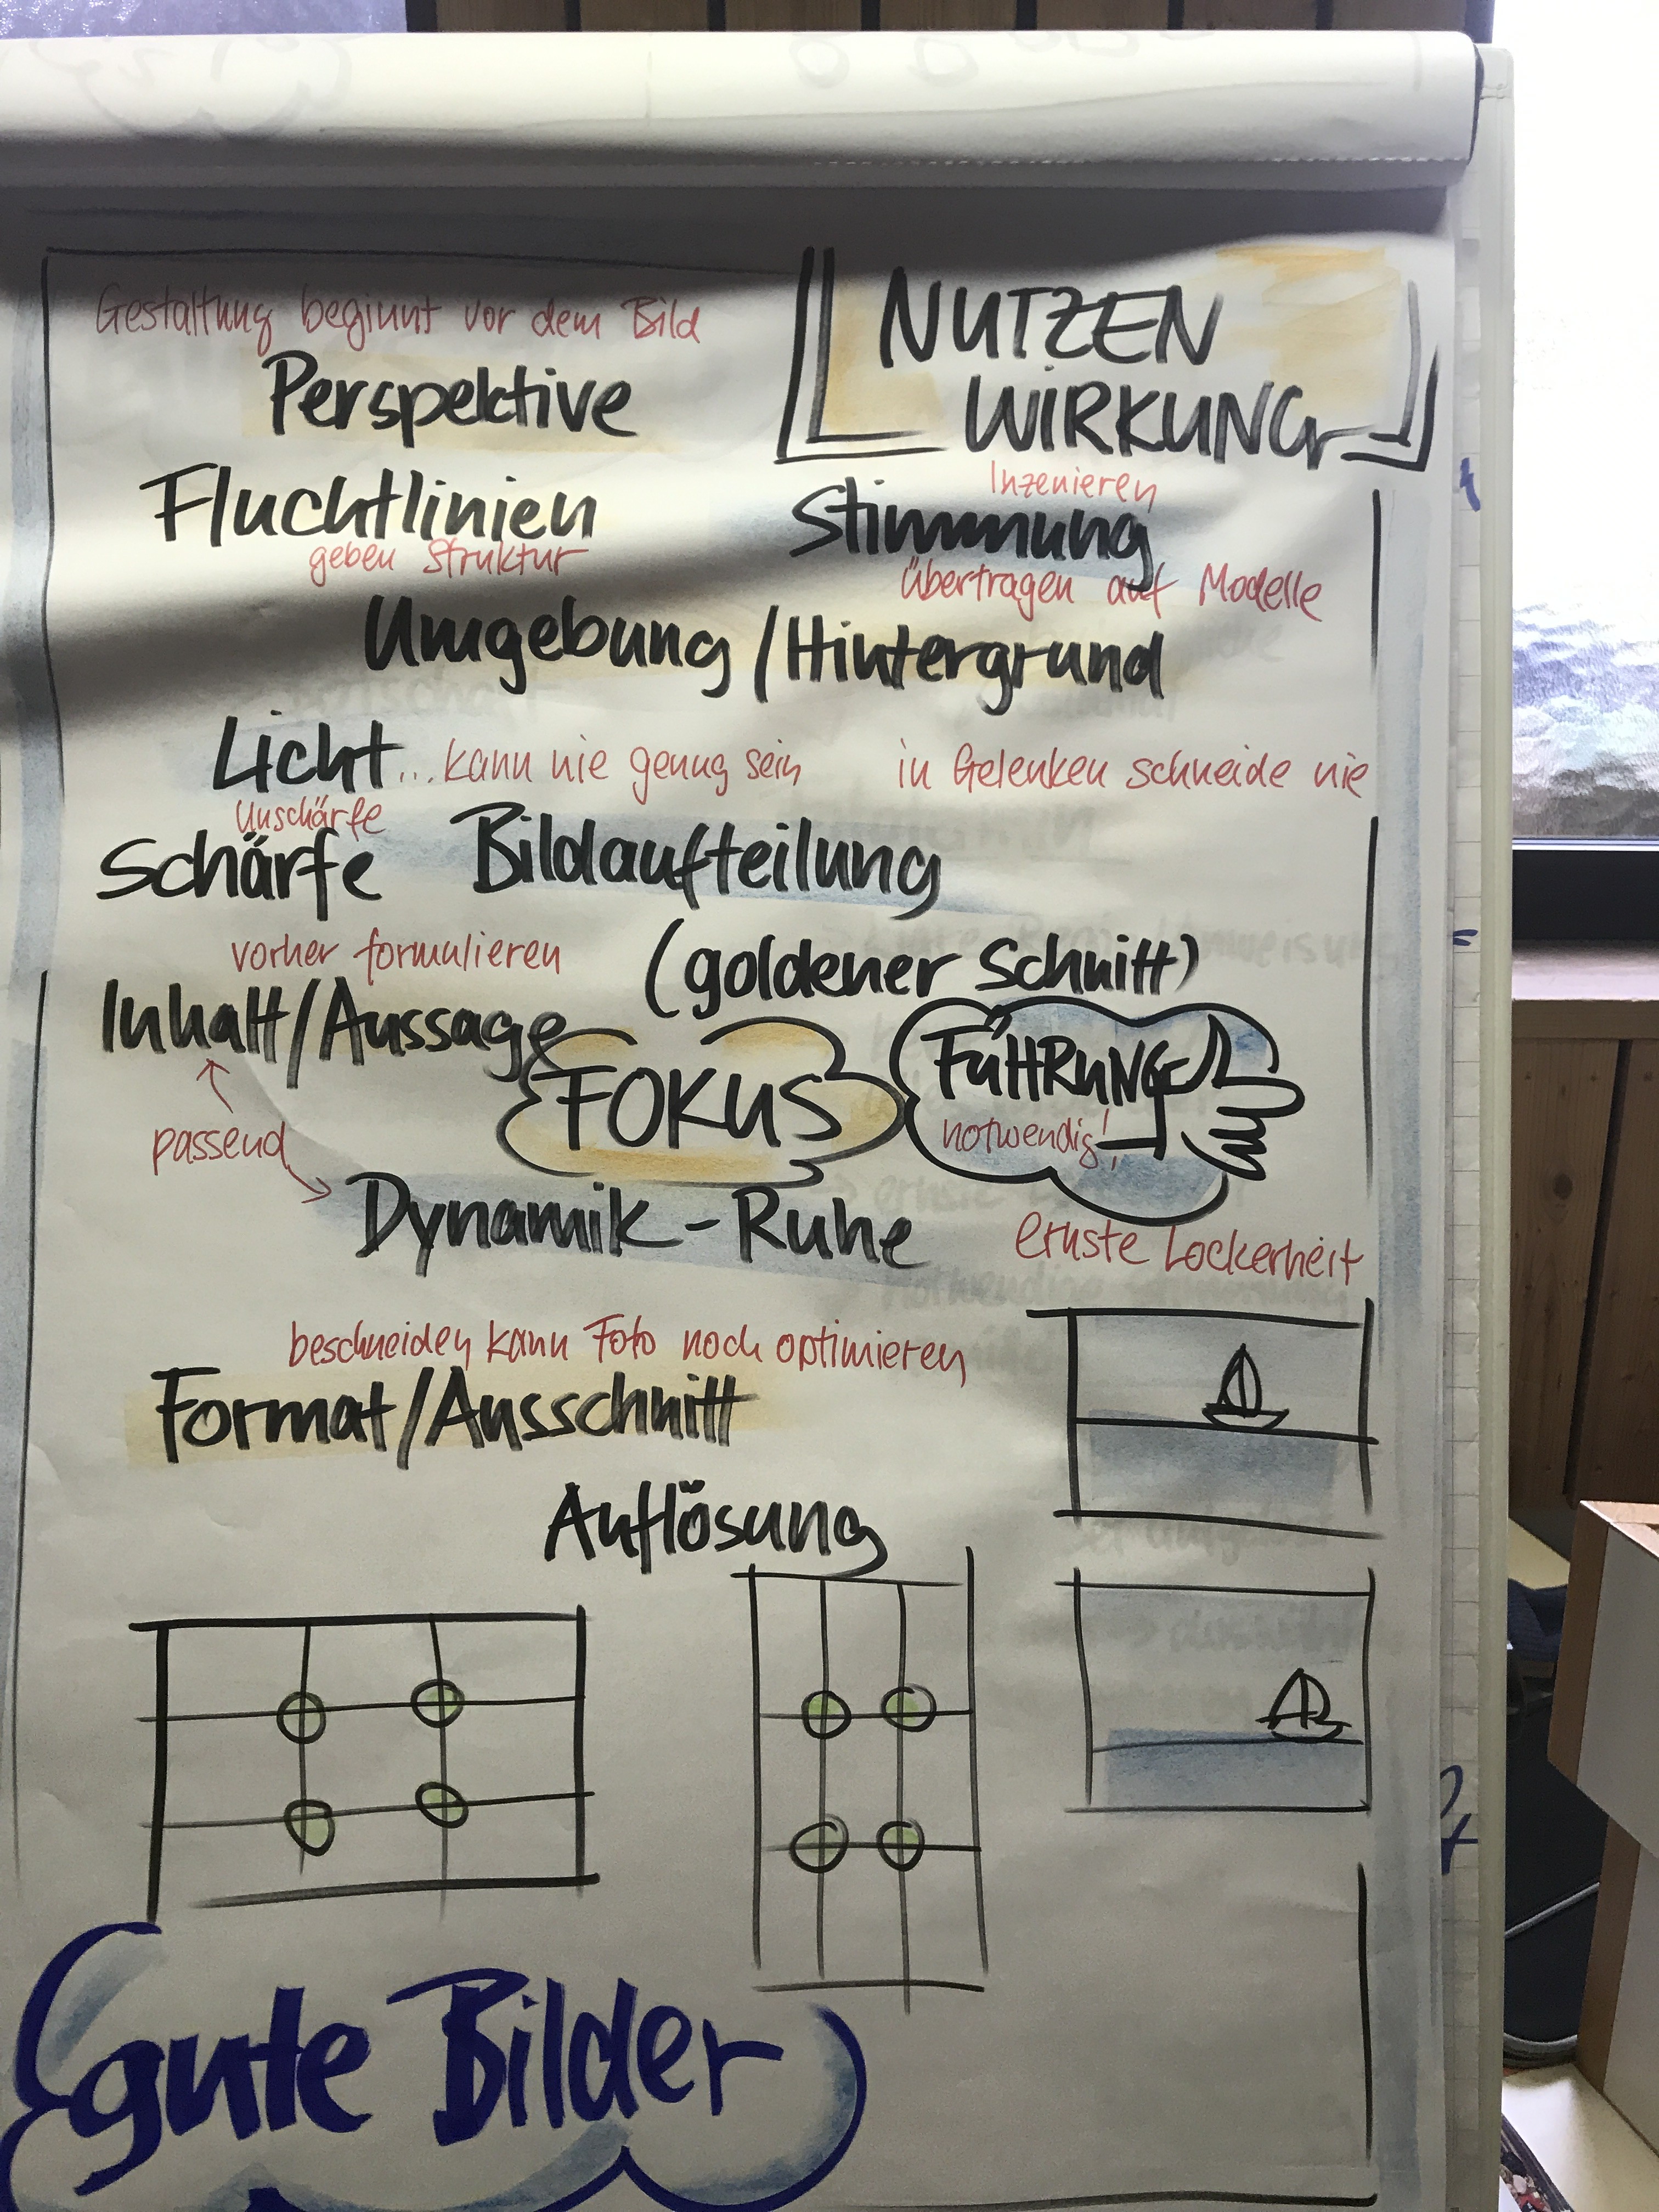 Gestaltung beginnt vor dem Bild
Perspektive
NUTZEN
WIRKUNG
Fluchtlinien
geben Struktur
Inzenieren
Stimmung
übertragen auf Modelle
Umgebung/Hintergrund
Licht...kann nie genug sein
in Gelenken schneide nie
Unschärfe
Schärfe
Bildaufteilung
(goldener Schnitt)
vorher formulieren
Inhalt/Aussage
FOKUS
FÜHRUNG
notwendig!
passend
Dynamik-Ruhe
ernste Lockerheit
beschneiden kann Foto noch optimieren
Format/Ausschnitt
Auflösung
gute Bilder